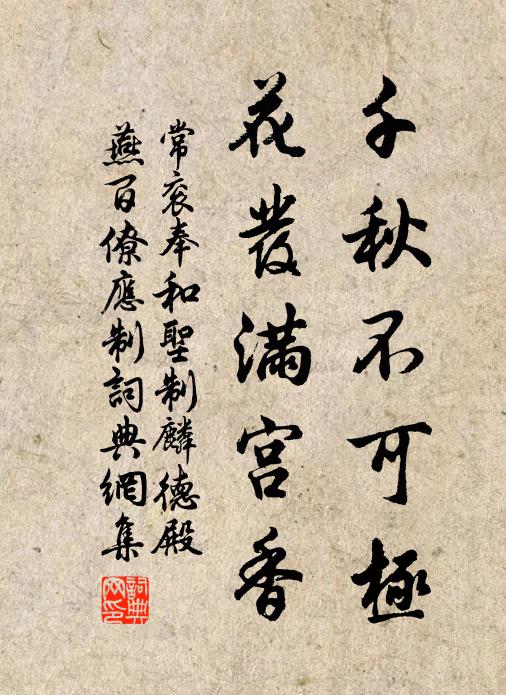 千秋不可極
花發滿宮香
常袞奉和聖制麟德殿
燕百僚應制詞典網集
詞典網印